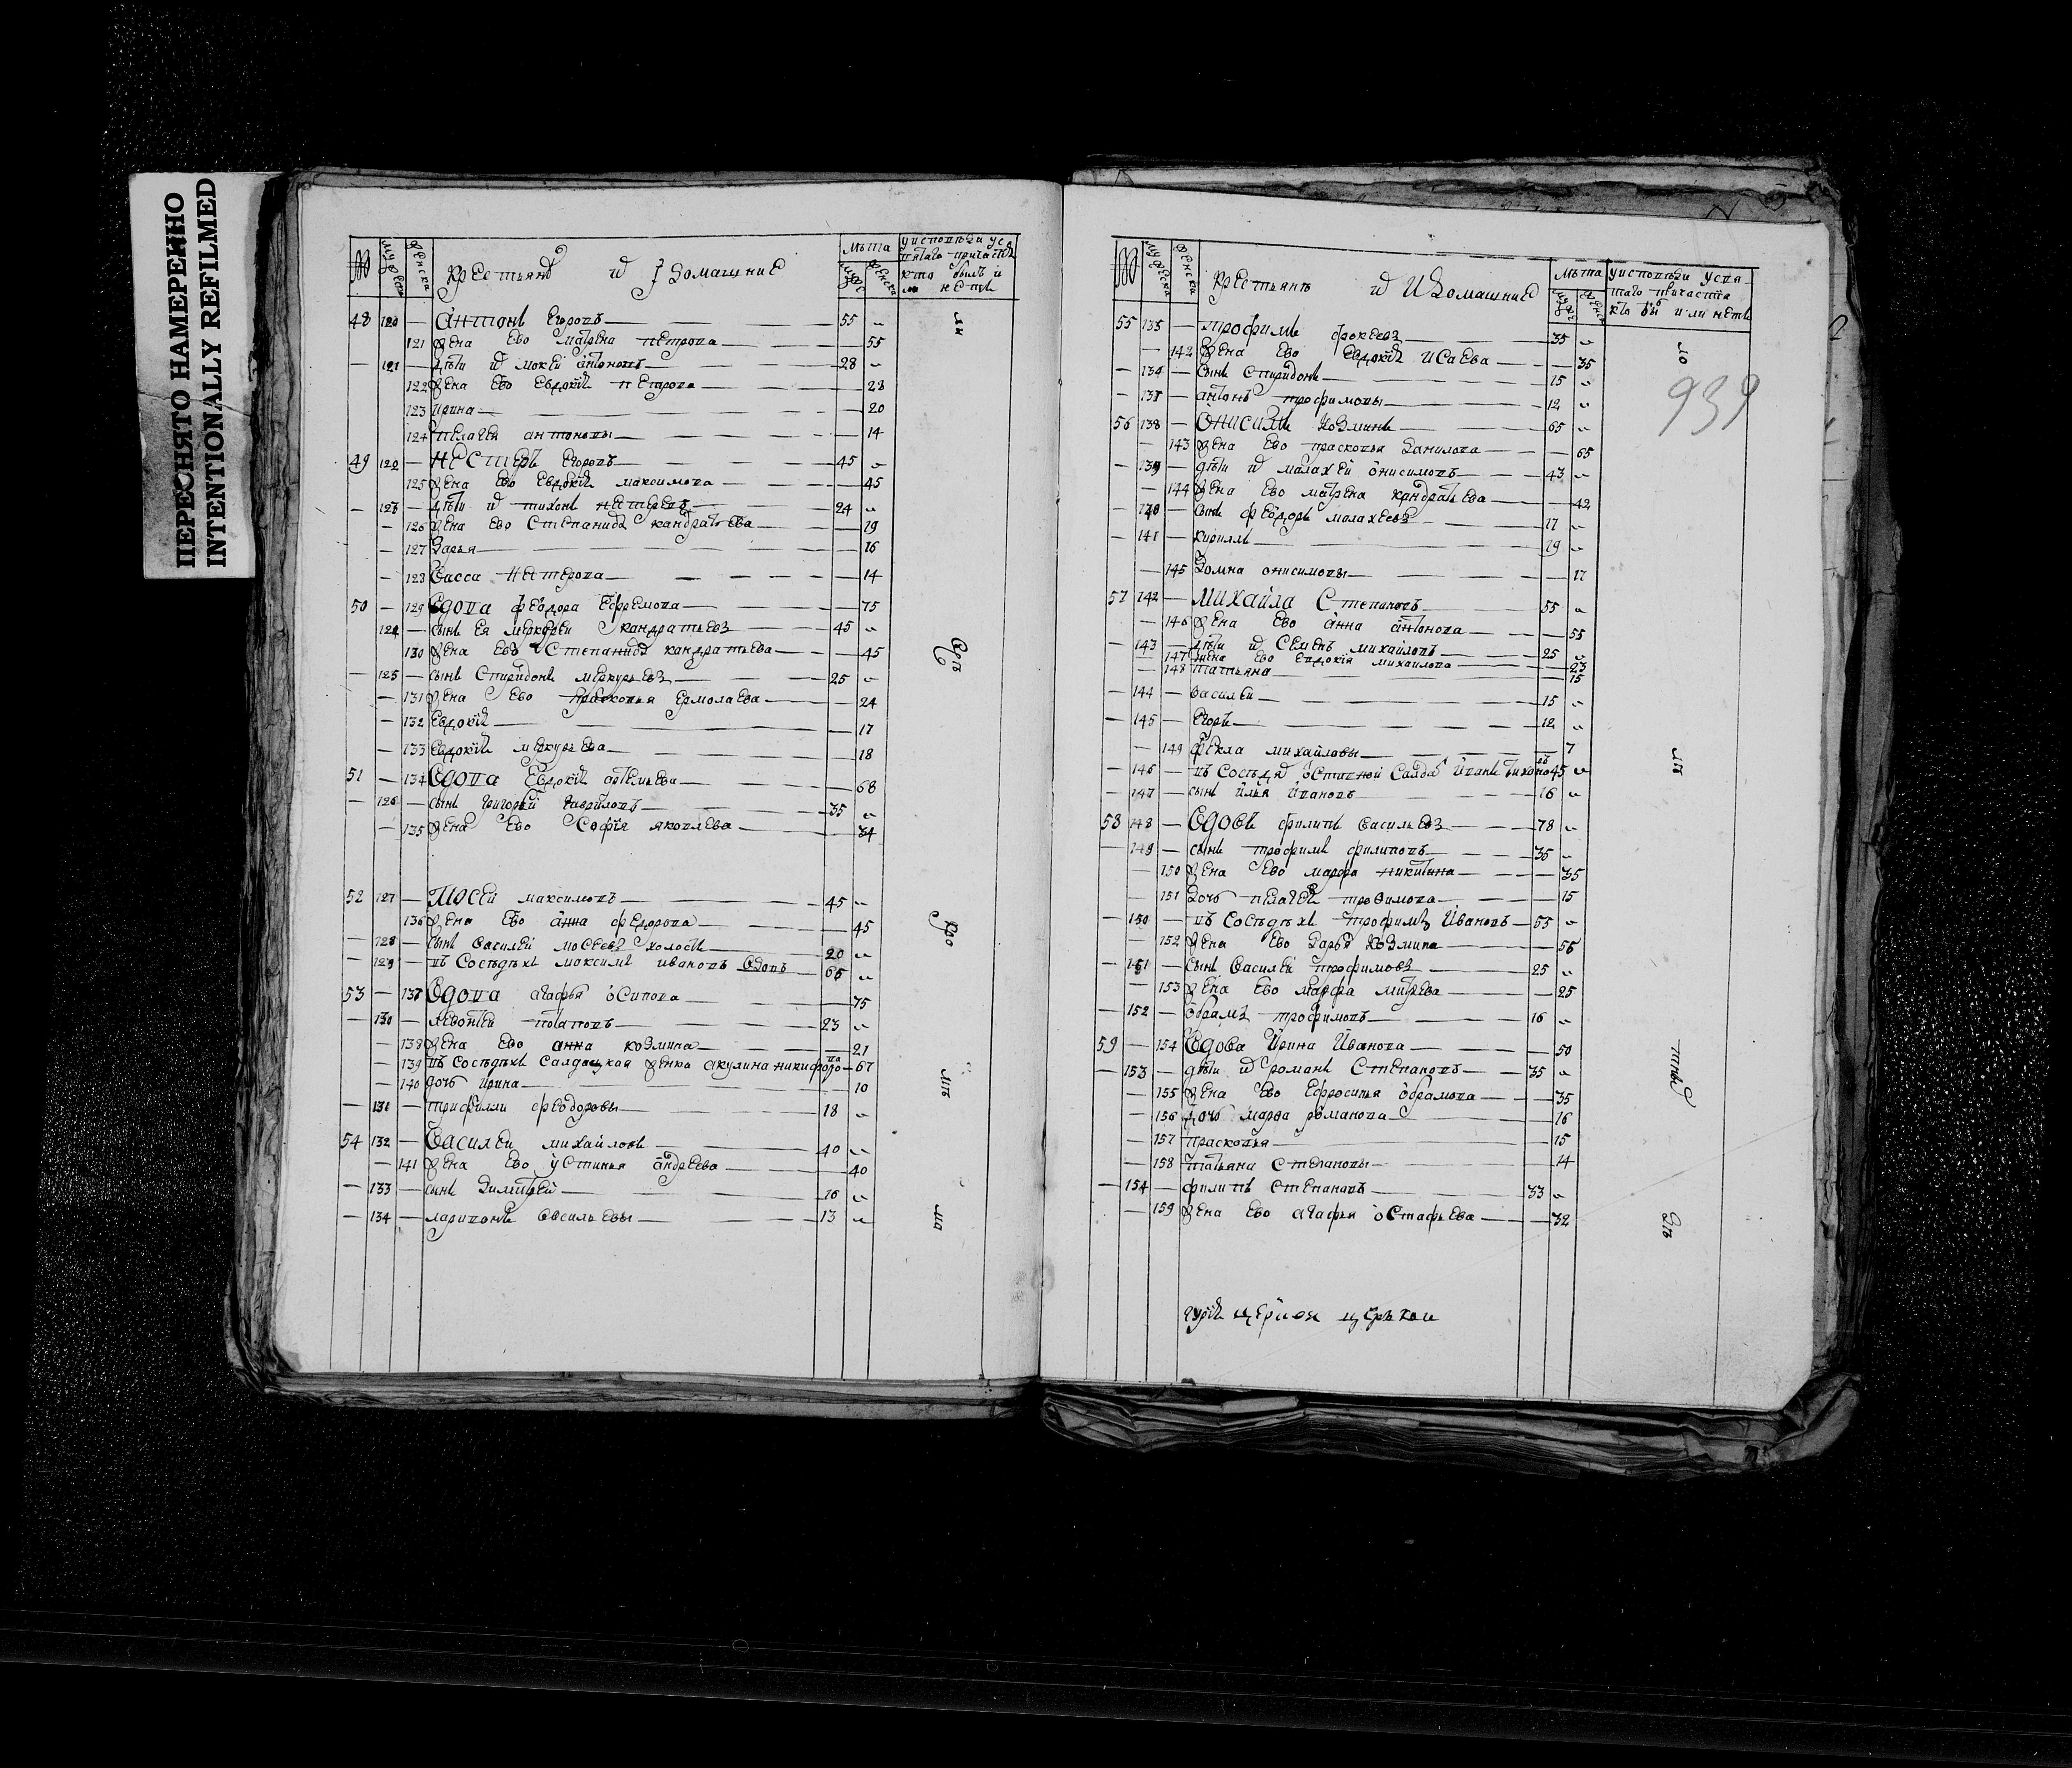 ПЕРЕСНЯТО НАМЕРЕННО
INTENTIONALLY REFILMED
№ мужеска женска крестьяне и домашние лета муж женска
у исповеди и у свя
таго причастия
кто был и
ли нетъ
48 120 — антонъ егоровъ 55 —
121 жена ево матрена петрова 55
— 121 — дети их мокей антоновъ 28 —
122 жена ево евдокия петрова 28
123 ирина 20
124 пелагея антоновы 14
49 122 — нестеръ егоровъ 45 —
125 жена ево евдокия максимова 45
— 123 — дети их тихонъ нестеревъ 24 —
— 126 жена ево степанида кандратьева 19
— 127 дарья 16
— 128 васса нестерова 14
50 — 129 вдова федора ефремова 75
124 — сынъ ея меркурей кандратьевъ 45 —
130 жена ево степанида кандратьева 45
— 125 — сынъ спиридонъ меркурьевъ 25 —
— 131 жена ево прасковья ермолаева 24
— 132 евдокия 17
— 133 евдокия меркурьева 18
51 — 134 вдова евдокия артемьева 68
— 126 — сынъ григорей гавриловъ 35 —
— 135 жена ево софия яковлева 34
52 127 — мосей максимовъ 45 —
136 жена ево анна федорова 45
— 128 — сынъ василей мосеевъ холостъ 20 —
— 129 — въ соседехъ максимъ ивановъ вдовъ 65 —
53 — 137 вдова агафья осипова 75
— 130 — левонтей потаповъ 23 —
— 138 жена ево анна козмина 21
— 139 въ соседехъ салдацкая женка акулина никифорова 67
— 140 дочь ирина 10
— 131 — трифилли федоровы 18 —
54 132 — василей михайловъ 40 —
— 141 жена ево устинья андреева 40
— 133 — сынъ димитрей 16 —
— 134 — ларивонъ васильевы 13 —
№ мужеска женска крестьянъ и их домашние лета муж женск
у исповеди и у свя
таго причастия
кто бы или нетъ
939
55 135 — трофимъ фокеевъ 35 —
— 142 жена ево евдокия исаева 35
— 136 — сынъ спиридонъ 15 —
— 137 — антонъ трофимовы 12 —
56 138 — онисимъ козминъ 65 —
— 143 жена ево прасковья данилова 65
— 139 — дети их малахей онисимовъ 43 —
— 144 жена ево матрена кандратьева 42
— 140 — сынъ федоръ малахеевъ 17 —
— 141 — кириллъ 19 —
— 145 домна онисимовы 17
57 142 — михайла степановъ 55 —
— 146 жена ево анна антонова 55
— 143 — дети их семенъ михайловъ 25 —
— 147 жена ево евдокия михайлова 23
— 148 татьяна 15
— 144 — василей 15 —
— 145 — егоръ 12 —
— 149 фекла михайловы 7
— 146 — въ соседях отставной салда иванъ тихановъ 45 —
— 147 — сынъ илья ивановъ 16 —
58 148 — вдовъ филипъ васильевъ 78 —
— 149 — сынъ трофимъ филиповъ 35 —
— 150 жена ево марфа никитина 35
— 151 дочь пелагея трофимова 15
— 150 — въ соседехъ трофимъ ивановъ 55 —
— 152 жена ево дарья козмина 55
— 151 — сынъ василей трофимовъ 25 —
— 153 жена ево марфа митрева 25
— 152 — обрамъ трофимовъ 16 —
59 — 154 вдова ирина иванова 50
— 153 — дети их романъ степановъ 35 —
— 155 жена ево ефросинья обрамова 35
— 156 дочь марфа романова 16
— 157 прасковья 15
— 158 татьяна степановы 14
— 154 — филипъ степановъ 33 —
— 159 жена ево агафья остафьева 32